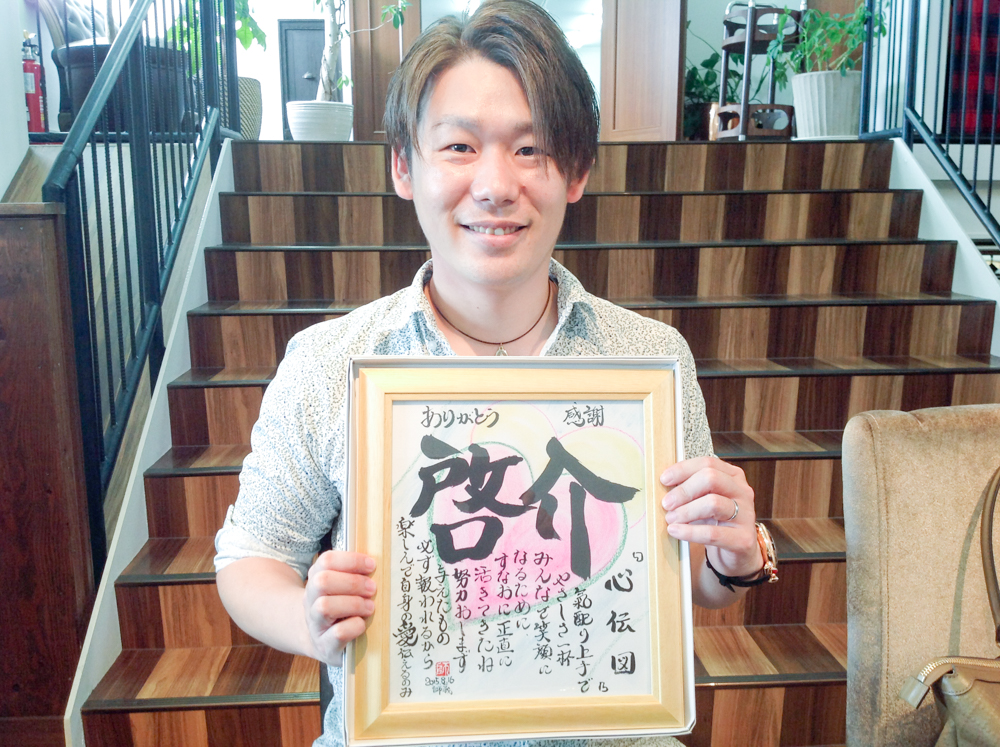 ありがとう
感謝
啓介
「心伝図」
気配り上手で
やさしさ一杯
みんなと笑顔に
なるために
すなおに正直に
活きてきたね
努力おしまず
与えたもの
必ず報われるから
楽しんで自身の愛伝えるのみ